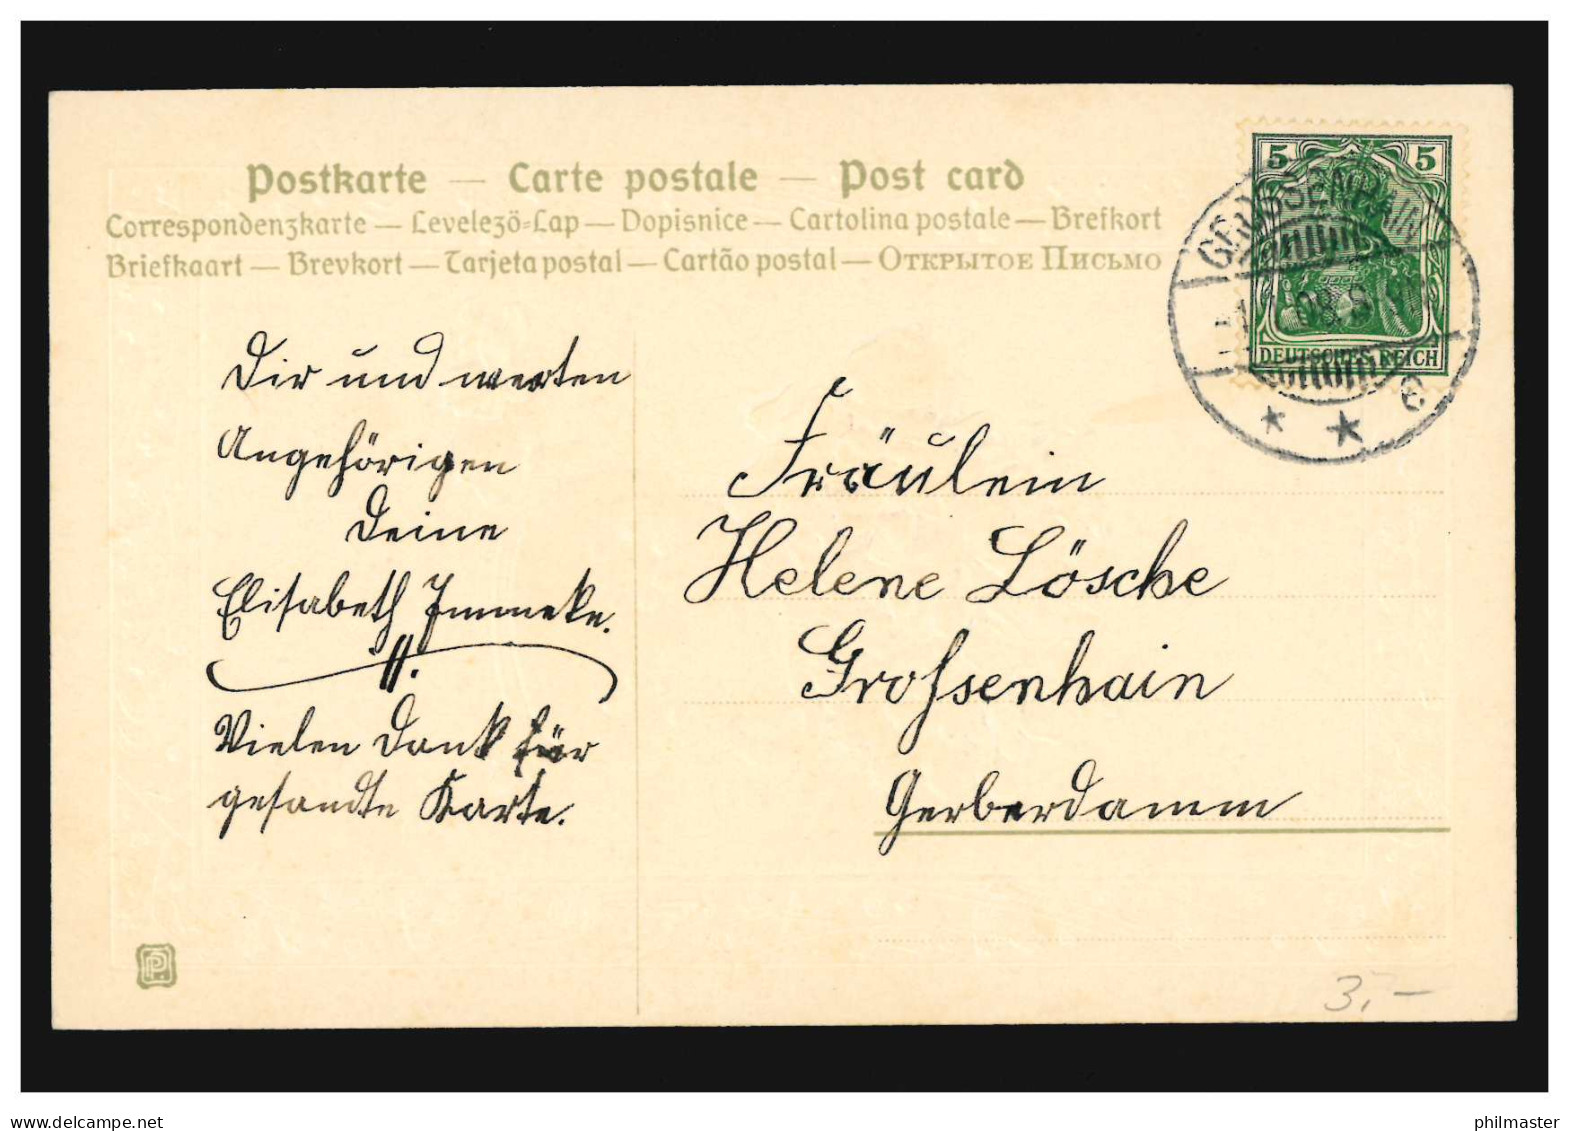 Postkarte — Carte postale — Post card
Correspondenzkarte — Levelezö-Lap — Dopisnice — Cartolina postale — Brefkort
Briefkaart — Brevkort — Tarjeta postal — Cartão postal — Открытое Письмо
5 5
DEUTSCHES REICH
GROSSENHAIN
08 8
* * e
Dir und werten
Angehörigen
Deine
Elisabeth Immeke.
Vielen Dank für
gesandte Karte.
Fräulein
Helene Lösche
Grossenhain
Gerberdamm
3,–
delcampe.net
philmaster